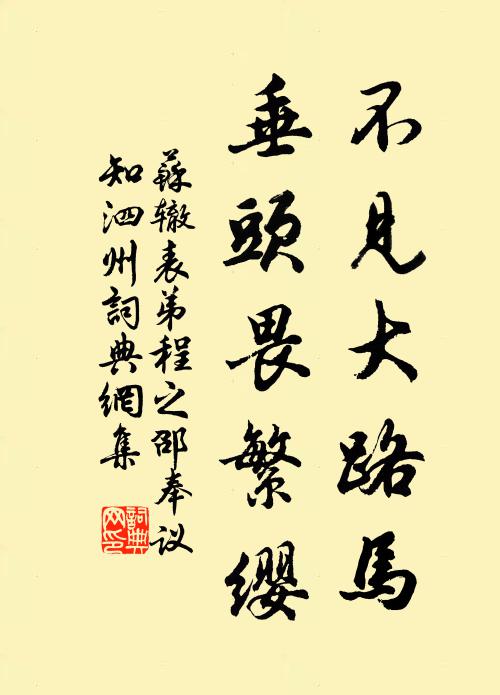 不見大路馬
垂頭畏繁纓
蘇辙表弟程之邵奉议
知泗州詞典網集
詞典网印